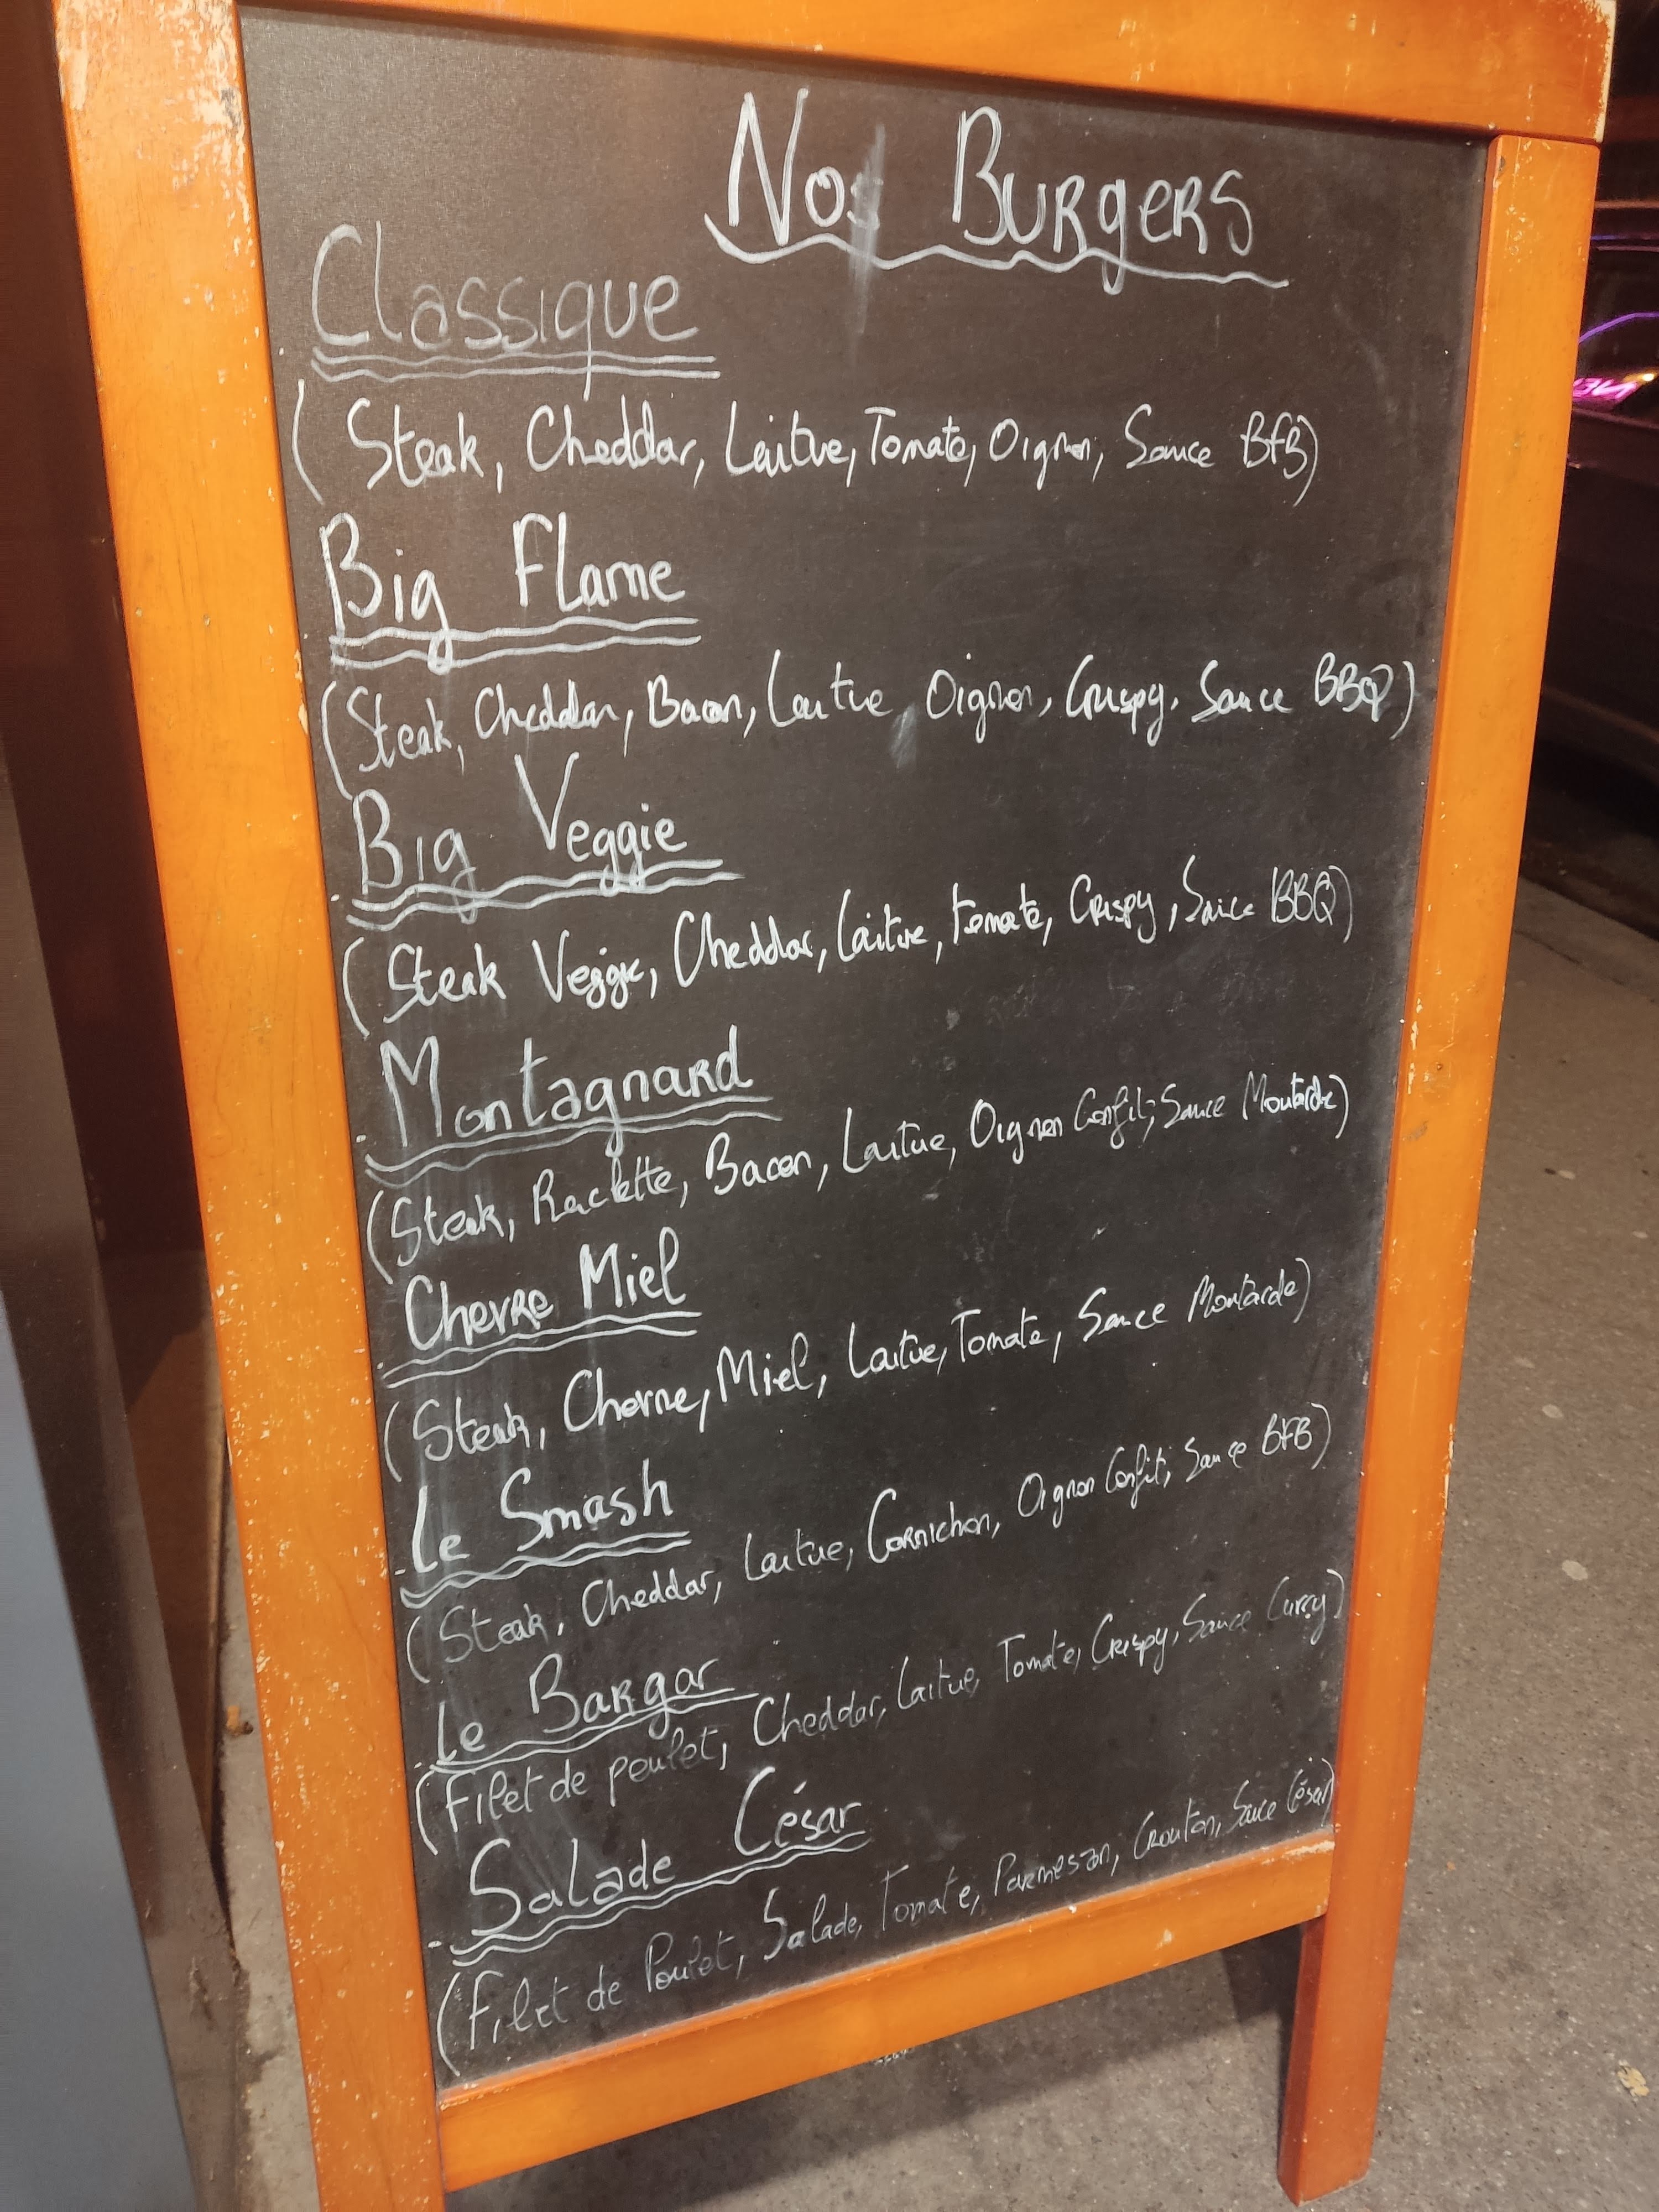 Nos Burgers
Classique
(Steak, Cheddar, Laitue, Tomate, Oignon, Sauce BFB)
Big Flame
(Steak, Cheddar, Bacon, Laitue, Oignon, Crispy, Sauce BBQ)
Big Veggie
(Steak Veggie, Cheddar, Laitue, tomate, Crispy, Sauce BBQ)
Montagnard
(Steak, Raclette, Bacon, Laitue, Oignon Confit, Sauce Moutarde)
Chevre Miel
(Steak, Chevre, Miel, Laitue, Tomate, Sauce Moutarde)
Le Smash
(Steak, Cheddar, Laitue, Cornichon, Oignon Confit, Sauce BFB)
Le Bargar
(Filet de poulet, Cheddar, Laitue, Tomate, Crispy, Sauce Curry)
Salade César
(Filet de Poulet, Salade, Tomate, Parmesan, Crouton, Sauce César)